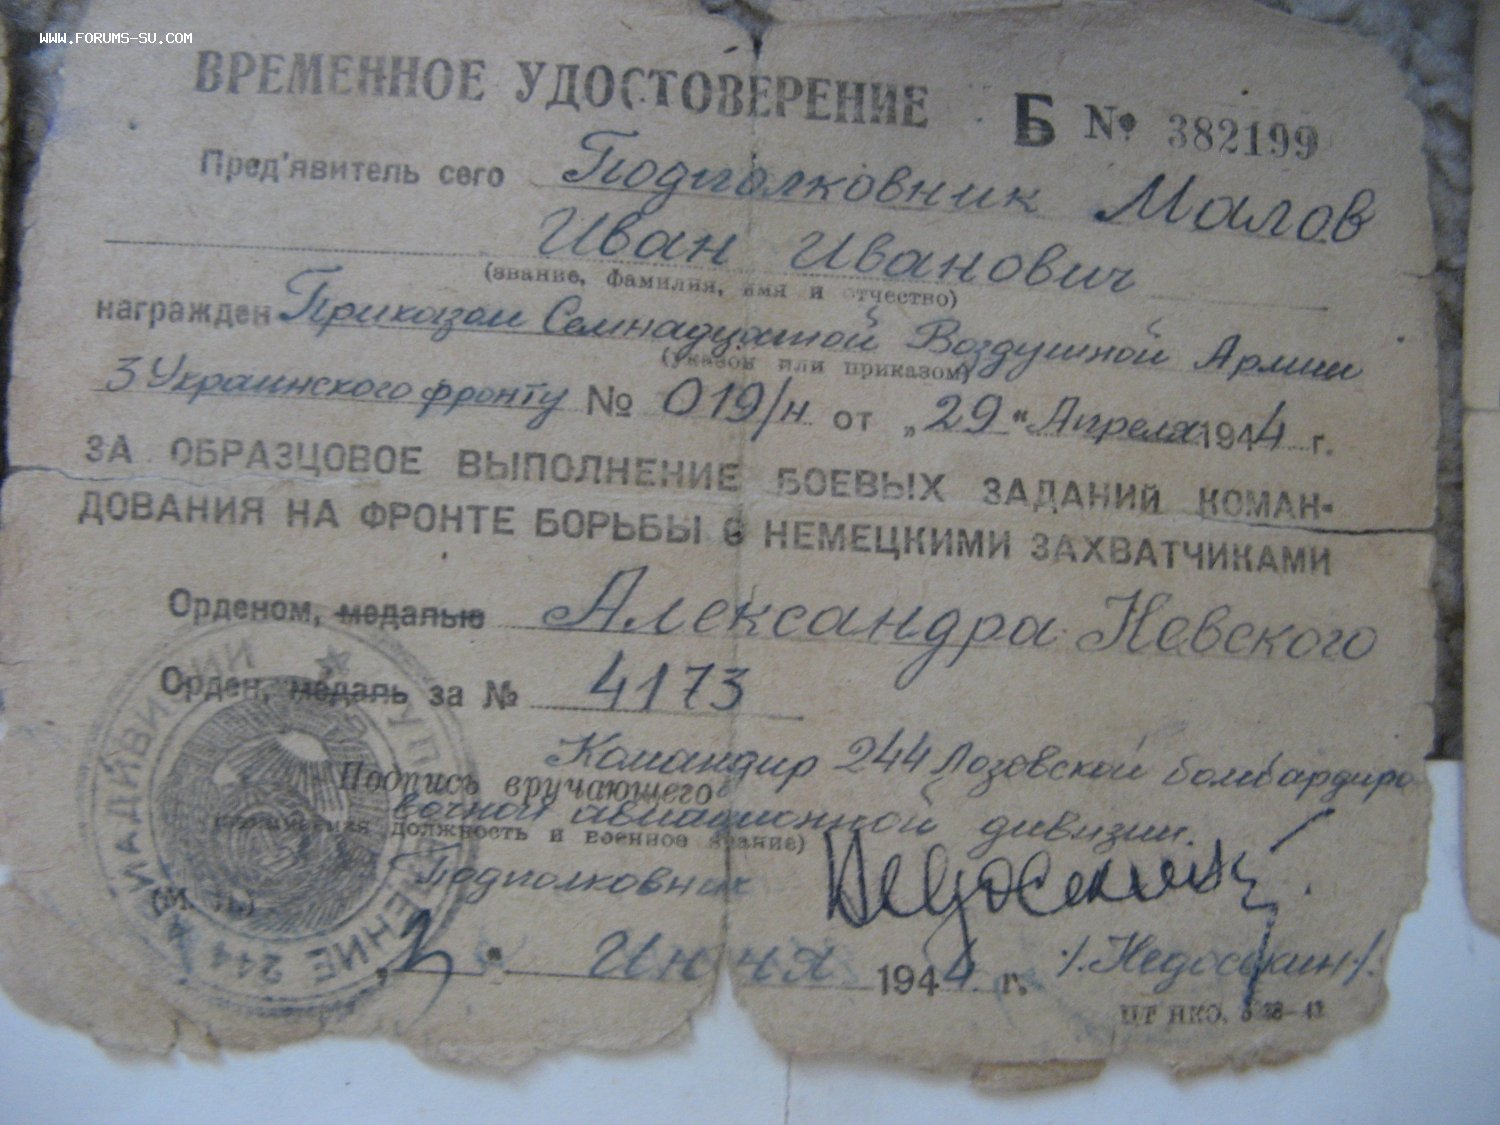 WWW.FORUMS-SU.COM
ВРЕМЕННОЕ УДОСТОВЕРЕНИЕ Б № 382199
Пред'явитель сего Подполковник Малов
Иван Иванович
(звание, фамилия, имя и отчество)
награжден Приказом Семнадцатой Воздушной Армии
(указом или приказом)
3 Украинского фронту № 019/н от „29" Апреля 1944 г.
ЗА ОБРАЗЦОВОЕ ВЫПОЛНЕНИЕ БОЕВЫХ ЗАДАНИЙ КОМАН-
ДОВАНИЯ НА ФРОНТЕ БОРЬБЫ С НЕМЕЦКИМИ ЗАХВАТЧИКАМИ
Орденом, медалью Александра Невского
Орден, медаль за № 4173
Командир 244 Лозовской бомбардиро
Подпись вручающего
вочной авиационной дивизии.
должность и военное звание)
Подполковник
(М. П.)
„2" Июня 1944 г. /.Недосекин/.
ЦТ НКО, 43
УПРАВЛЕНИЕ 244 АВИАДИВИЗИИ